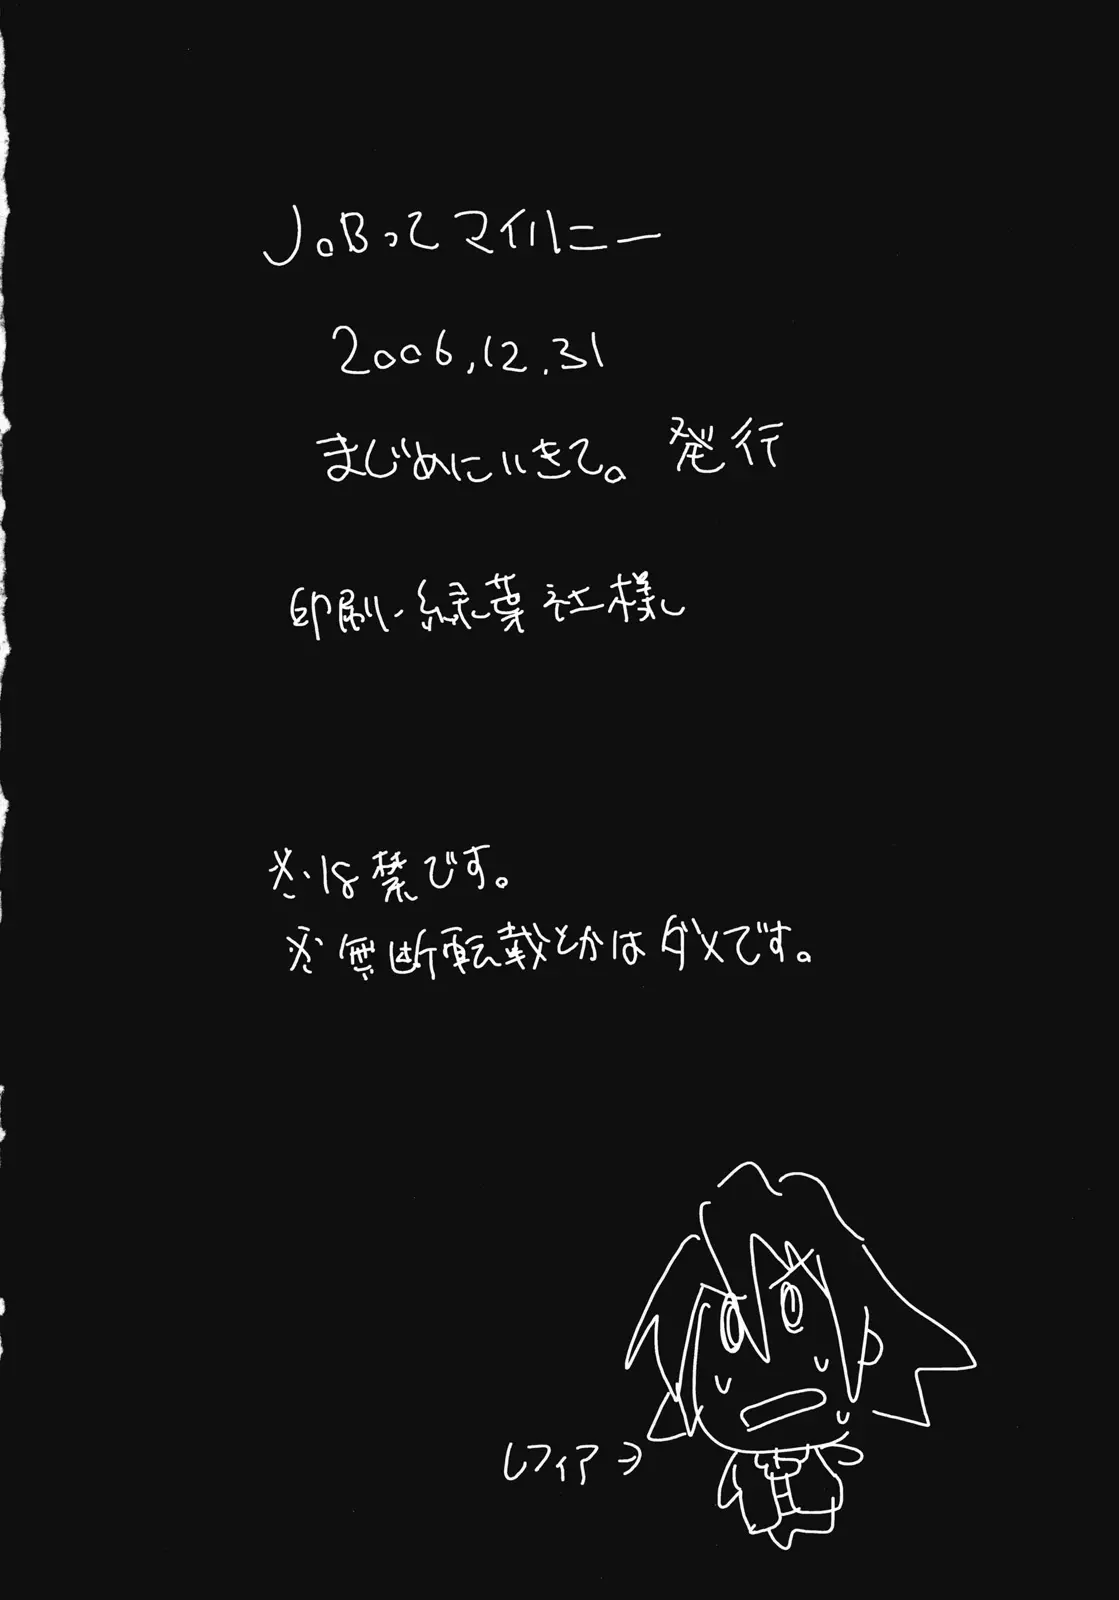 JoBってマイハニー
2006.12.31
まじめにいきて。 発行
印刷・緑葉社様
※・18禁です。
※無断転載とかはダメです。
レフィア→